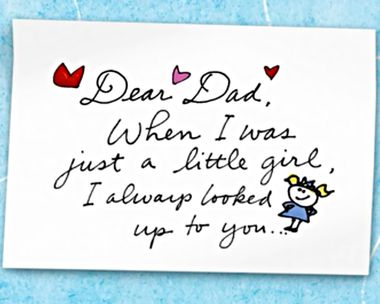 Dear Dad,
When I was
just a little girl,
I always looked
up to you...